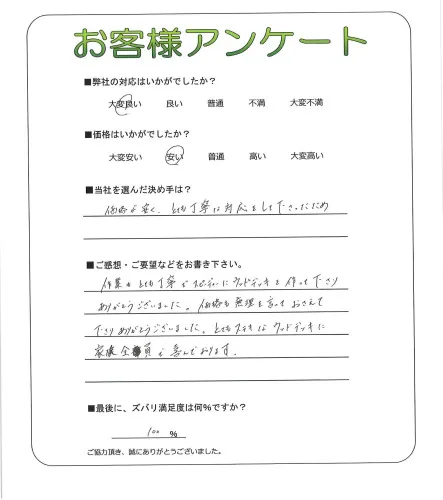 お客様アンケート
■弊社の対応はいかがでしたか?
大変良い 良い 普通 不満 大変不満
■価格はいかがでしたか?
大変安い 安い 普通 高い 大変高い
■当社を選んだ決め手は?
価格が安く、とても丁寧な対応をして下さったため
■ご感想・ご要望などをお書き下さい。
作業もとても丁寧でスピーディーにウッドデッキを作って下さり
ありがとうございました。価格も無理を言っておさえて
下さりありがとうございました。とてもステキなウッドデッキに
家族全員で喜んでおります。
■最後に、ズバリ満足度は何%ですか?
100 %
ご協力頂き、誠にありがとうございました。